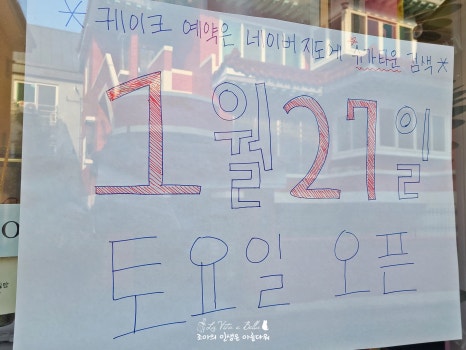 * 케이크 예약은 네이버지도에 슈가타운 검색 *
1월 27일
토요일 오픈
O
La Vita è Bella
조아의 인생은 아름다워